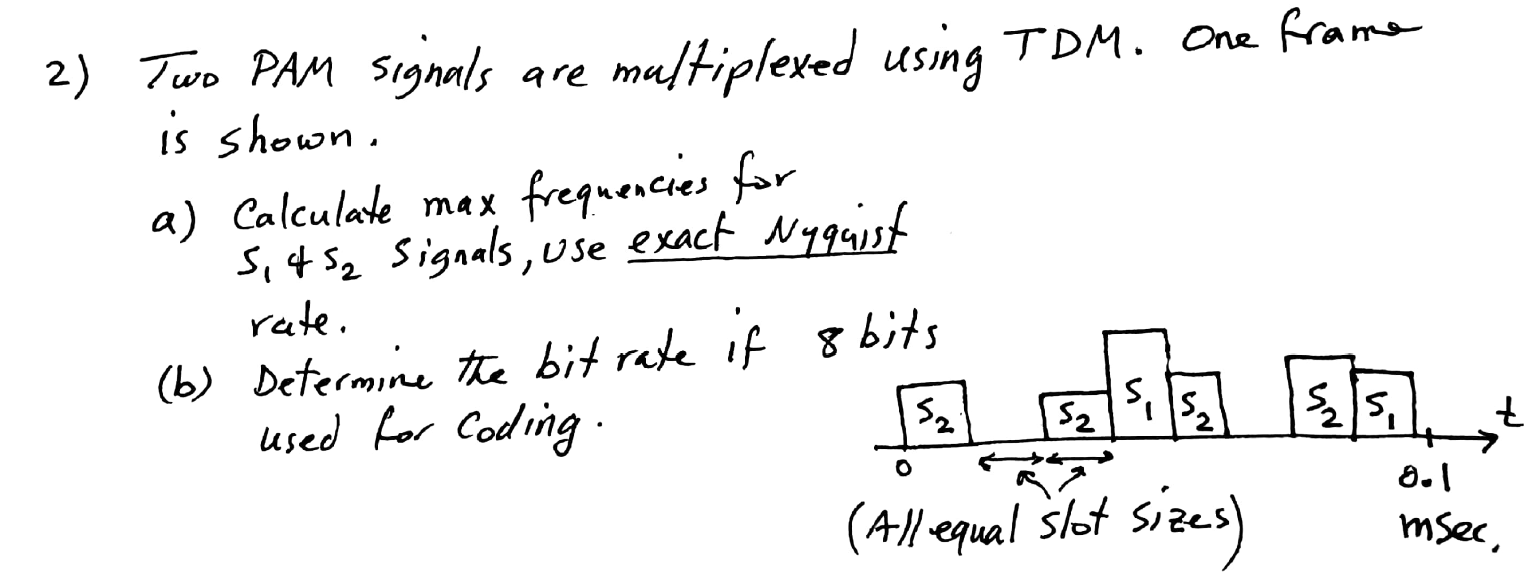 2) Two PAM signals are multiplexed using TDM. One frame
is shown.
a) Calculate max frequencies for
S₁ & S₂ Signals, use exact Nyquist
rate.
(b) Determine the bit rate if 8 bits
used for Coding.
S₂ S₂ S₁ S₂ S₂ S₁ t
0 0.1
(All equal slot sizes) msec.